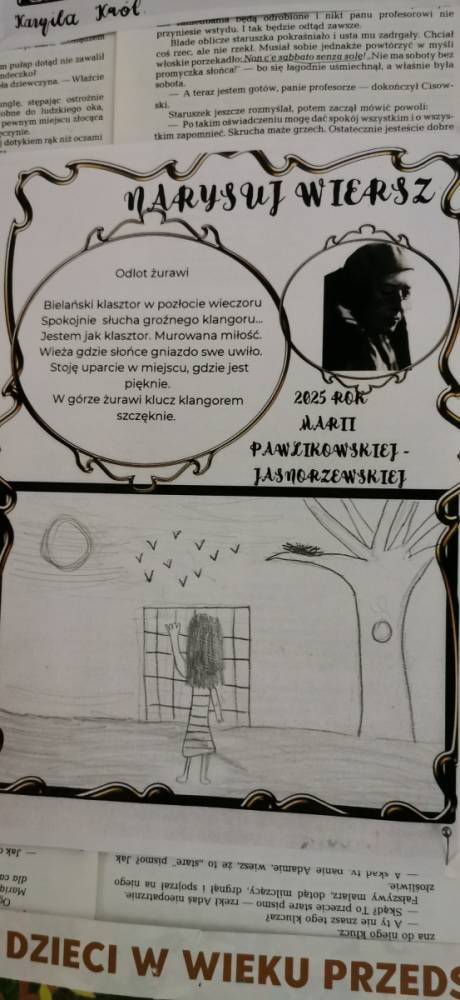 Kargila Król
będą odrobione i nikt panu profesorowi nie
przyniesie wstydu. I tak będzie odtąd zawsze.
Blade oblicze staruszka pokraśniało i usta mu zadrgały. Chciał
coś rzec, ale nie rzekł. Musiał sobie jednakże powtórzyć w myśli
włoskie porzekadło: Non c'e sabbato senza sole! „Nie ma soboty bez
promyczka słońca!" — bo się łagodnie uśmiechnął, a właśnie była
sobota.
— A teraz jestem gotów, panie profesorze — dokończył Cisow-
ski.
Staruszek jeszcze rozmyślał, potem zaczął mówić powoli:
— Po takim oświadczeniu mogę dać spokój wszystkim i o wszys-
tkim zapomnieć. Skrucha maże grzech. Ostatecznie jesteście dobre
m pułap dotąd nie zawalił
ndeczko?
ła dziewczyna. — Właście
nglę, stępając ostrożnie
obne do ludzkiego oka,
pewnym miejscu złocąca
czynie.
j dotykiem rąk niż oczami
NARYSUJ WIERSZ
Odlot żurawi
Bielański klasztor w pozłocie wieczoru
Spokojnie słucha groźnego klangoru...
Jestem jak klasztor. Murowana miłość.
Wieża gdzie słońce gniazdo swe uwiło.
Stoję uparcie w miejscu, gdzie jest
pięknie.
W górze żurawi klucz klangorem
szczęknie.
2025 ROK
MARII
PAWLIKOWSKIEJ-
JASNORZEWSKIEJ
zna do niego klucz.
— A ty nie znasz tego klucza?
— Skąd? To przecie stare pismo — rzekł Adaś nieopatrznie.
Fałszywy malarz, dotąd milczący, drgnął i spojrzał na niego
złośliwie.
— A skąd ty, panie Adamie, wiesz, że to „stare" pismo? Jak
— Jak
dla ca
Mariq
DZIECI W WIEKU PRZEDS